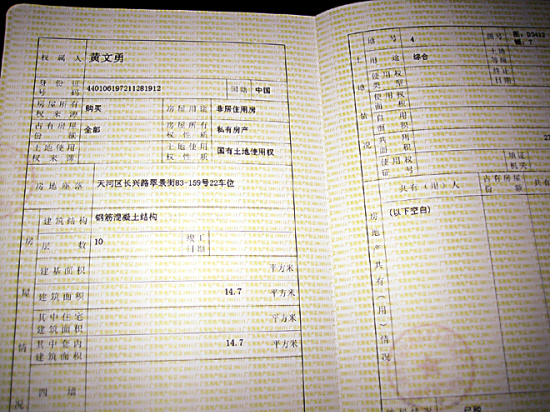 权属人 黄文勇
身份证号码 440106197211281912 国籍 中国
房屋所有权来源 购买 房屋用途 非居住用房
占有房屋份额 全部 房屋所有权性质 私有房产
土地使用权来源 土地使用权性质 国有土地使用权
房地座落 天河区长兴路翠景街83-159号22车位
建筑结构 钢筋混凝土结构
层数 10 竣工日期
建基面积 平方米
建筑面积 14.7 平方米
其中住宅建筑面积 平方米
其中套内建筑面积 14.7 平方米
四墙
房屋情况
地号 4 图号
土地情况
用途 综合 土地等级
使用权类型 终止日期
使用权面积
自用面积
共用面积
使用权证号 填证机关
共有(用)人 占有房屋份额
(以下空白)
房地产共有(用)情况